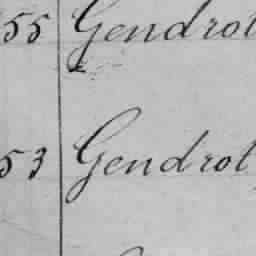 55 Gendrot
53 Gendrot